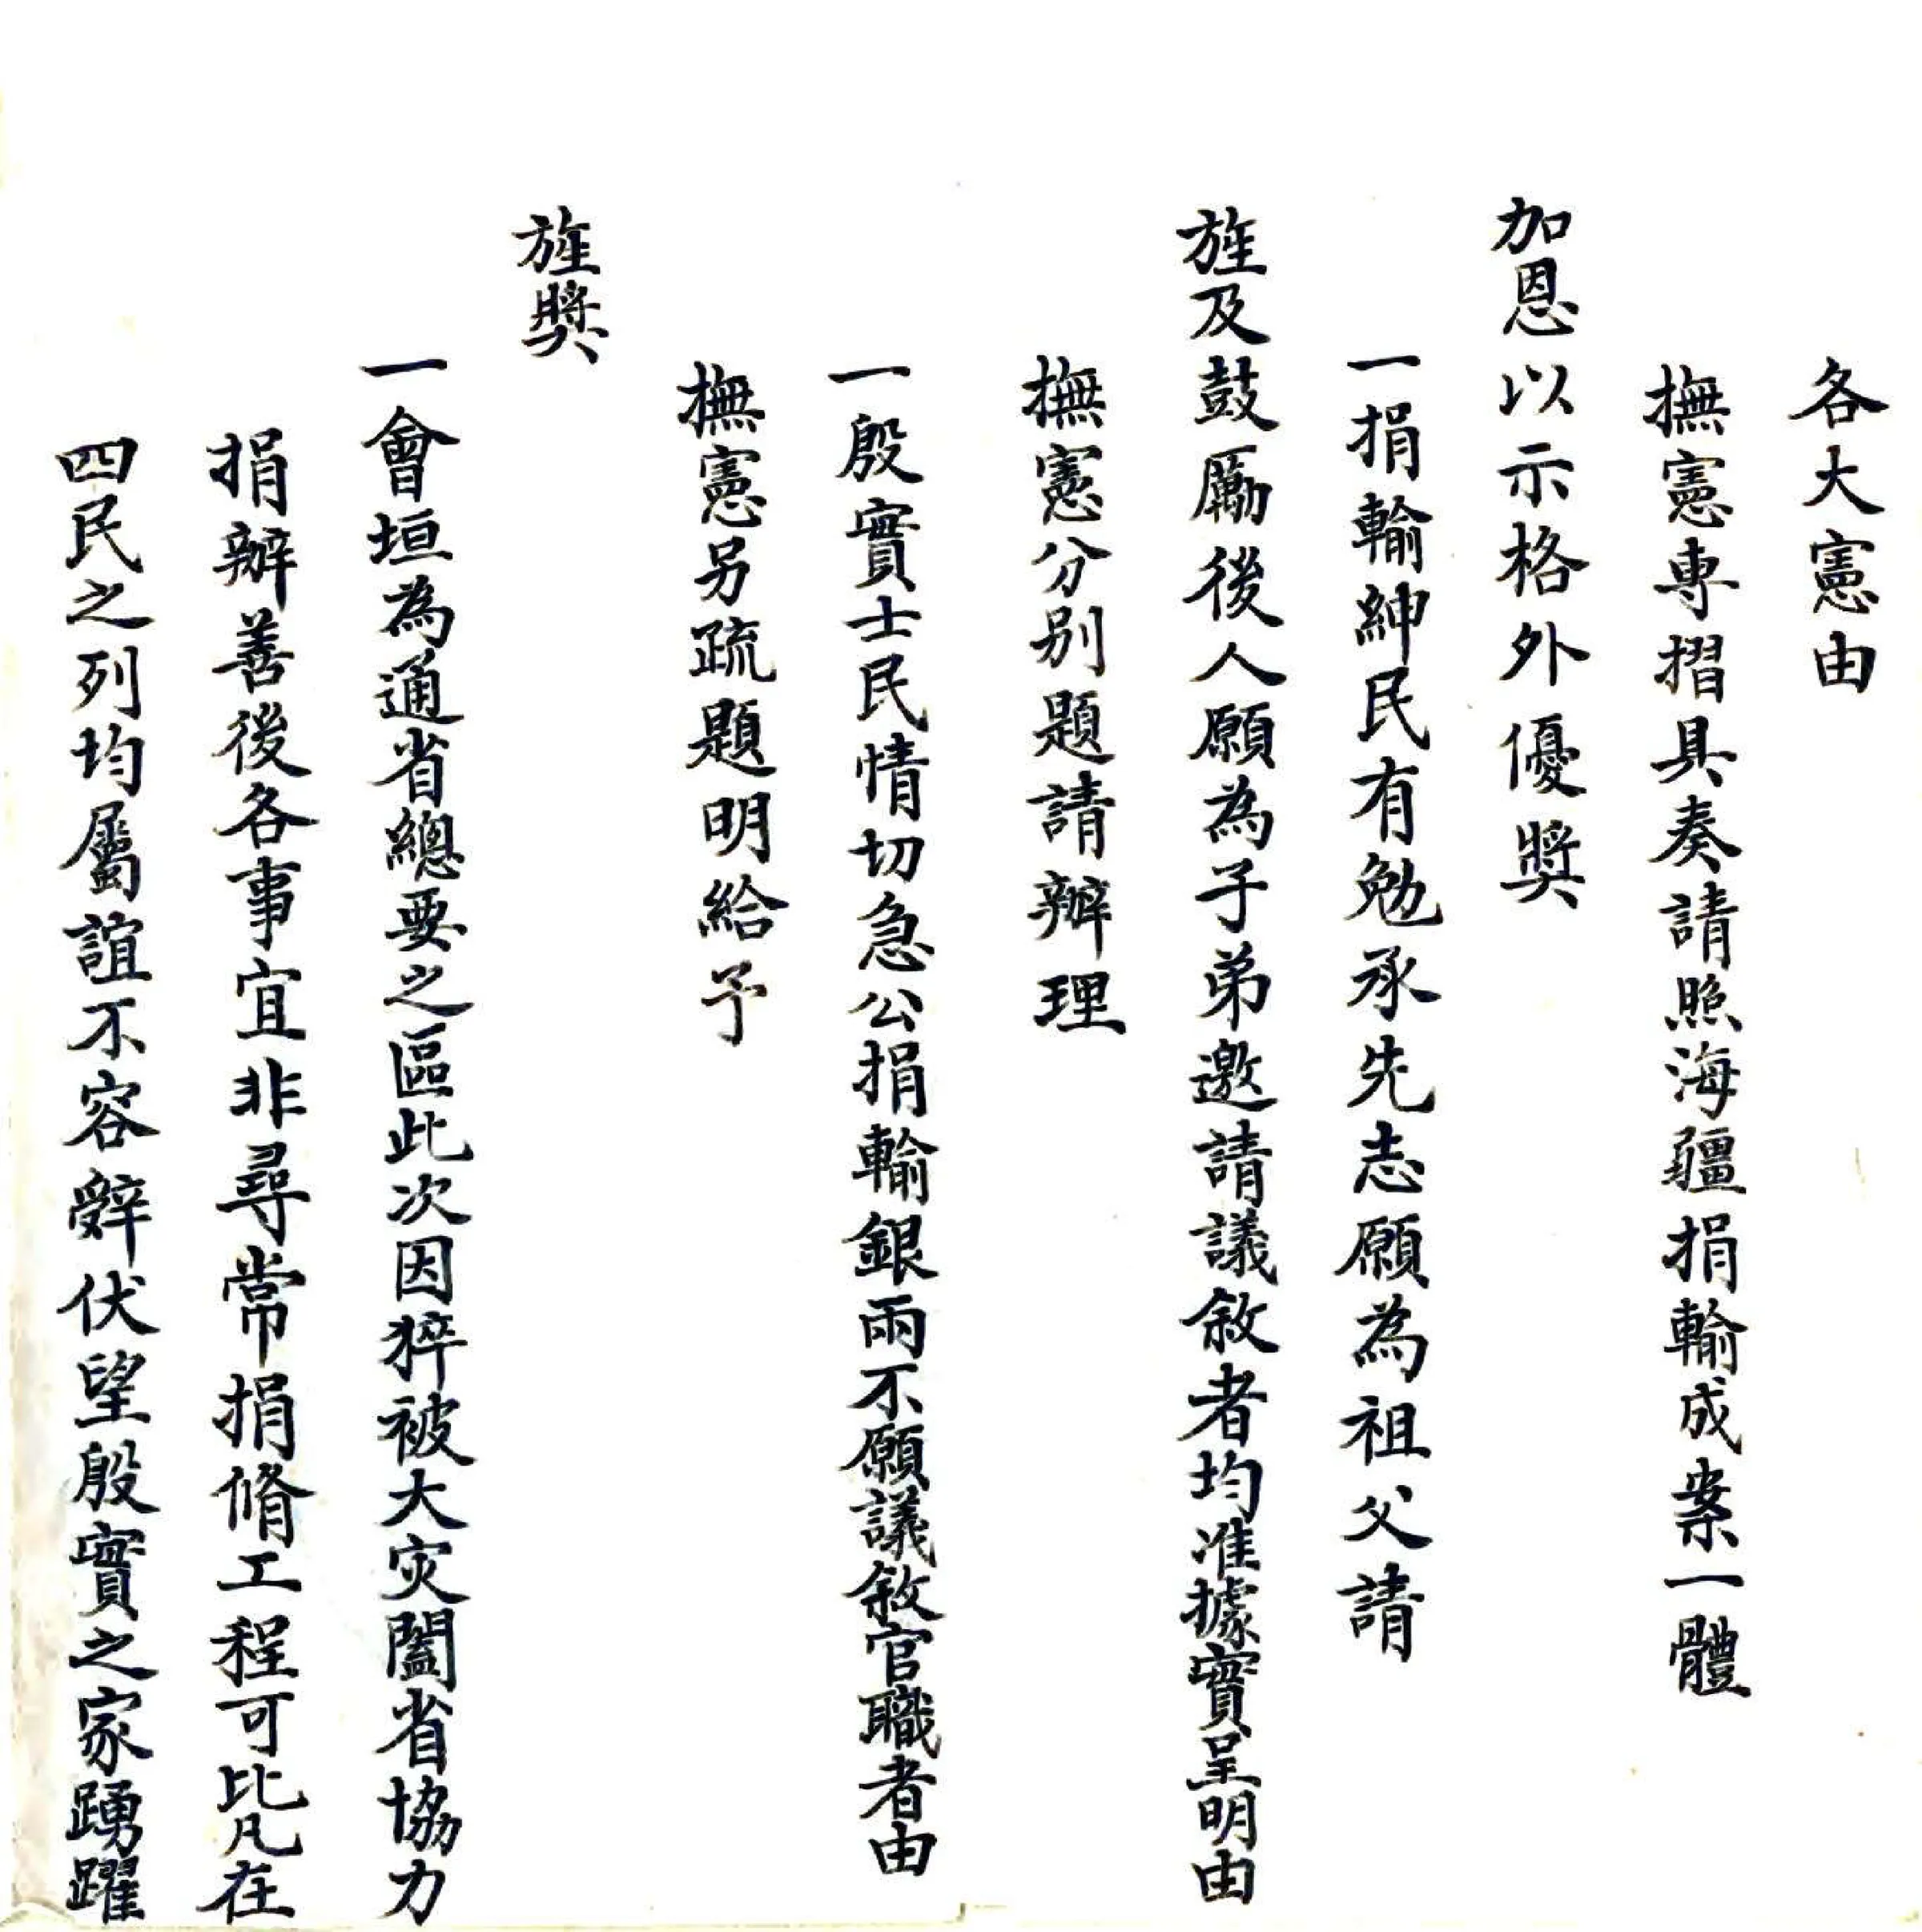 各大憲由
撫憲專摺具奏請照海疆捐輸成案一體
加恩以示格外優獎
一捐輸紳民有勉承先志願為祖父請
旌及鼓勵後人願為子弟邀請議敘者均准據實呈明由
撫憲分別題請辦理
一殷實士民情切急公捐輸銀兩不願議敘官職者由
撫憲另疏題明給予
旌獎
一會垣為通省總要之區此次因猝被大灾闔省協力
捐辦善後各事宜非尋常捐脩工程可比凡在
四民之列均屬誼不容辭伏望殷實之家踴躍